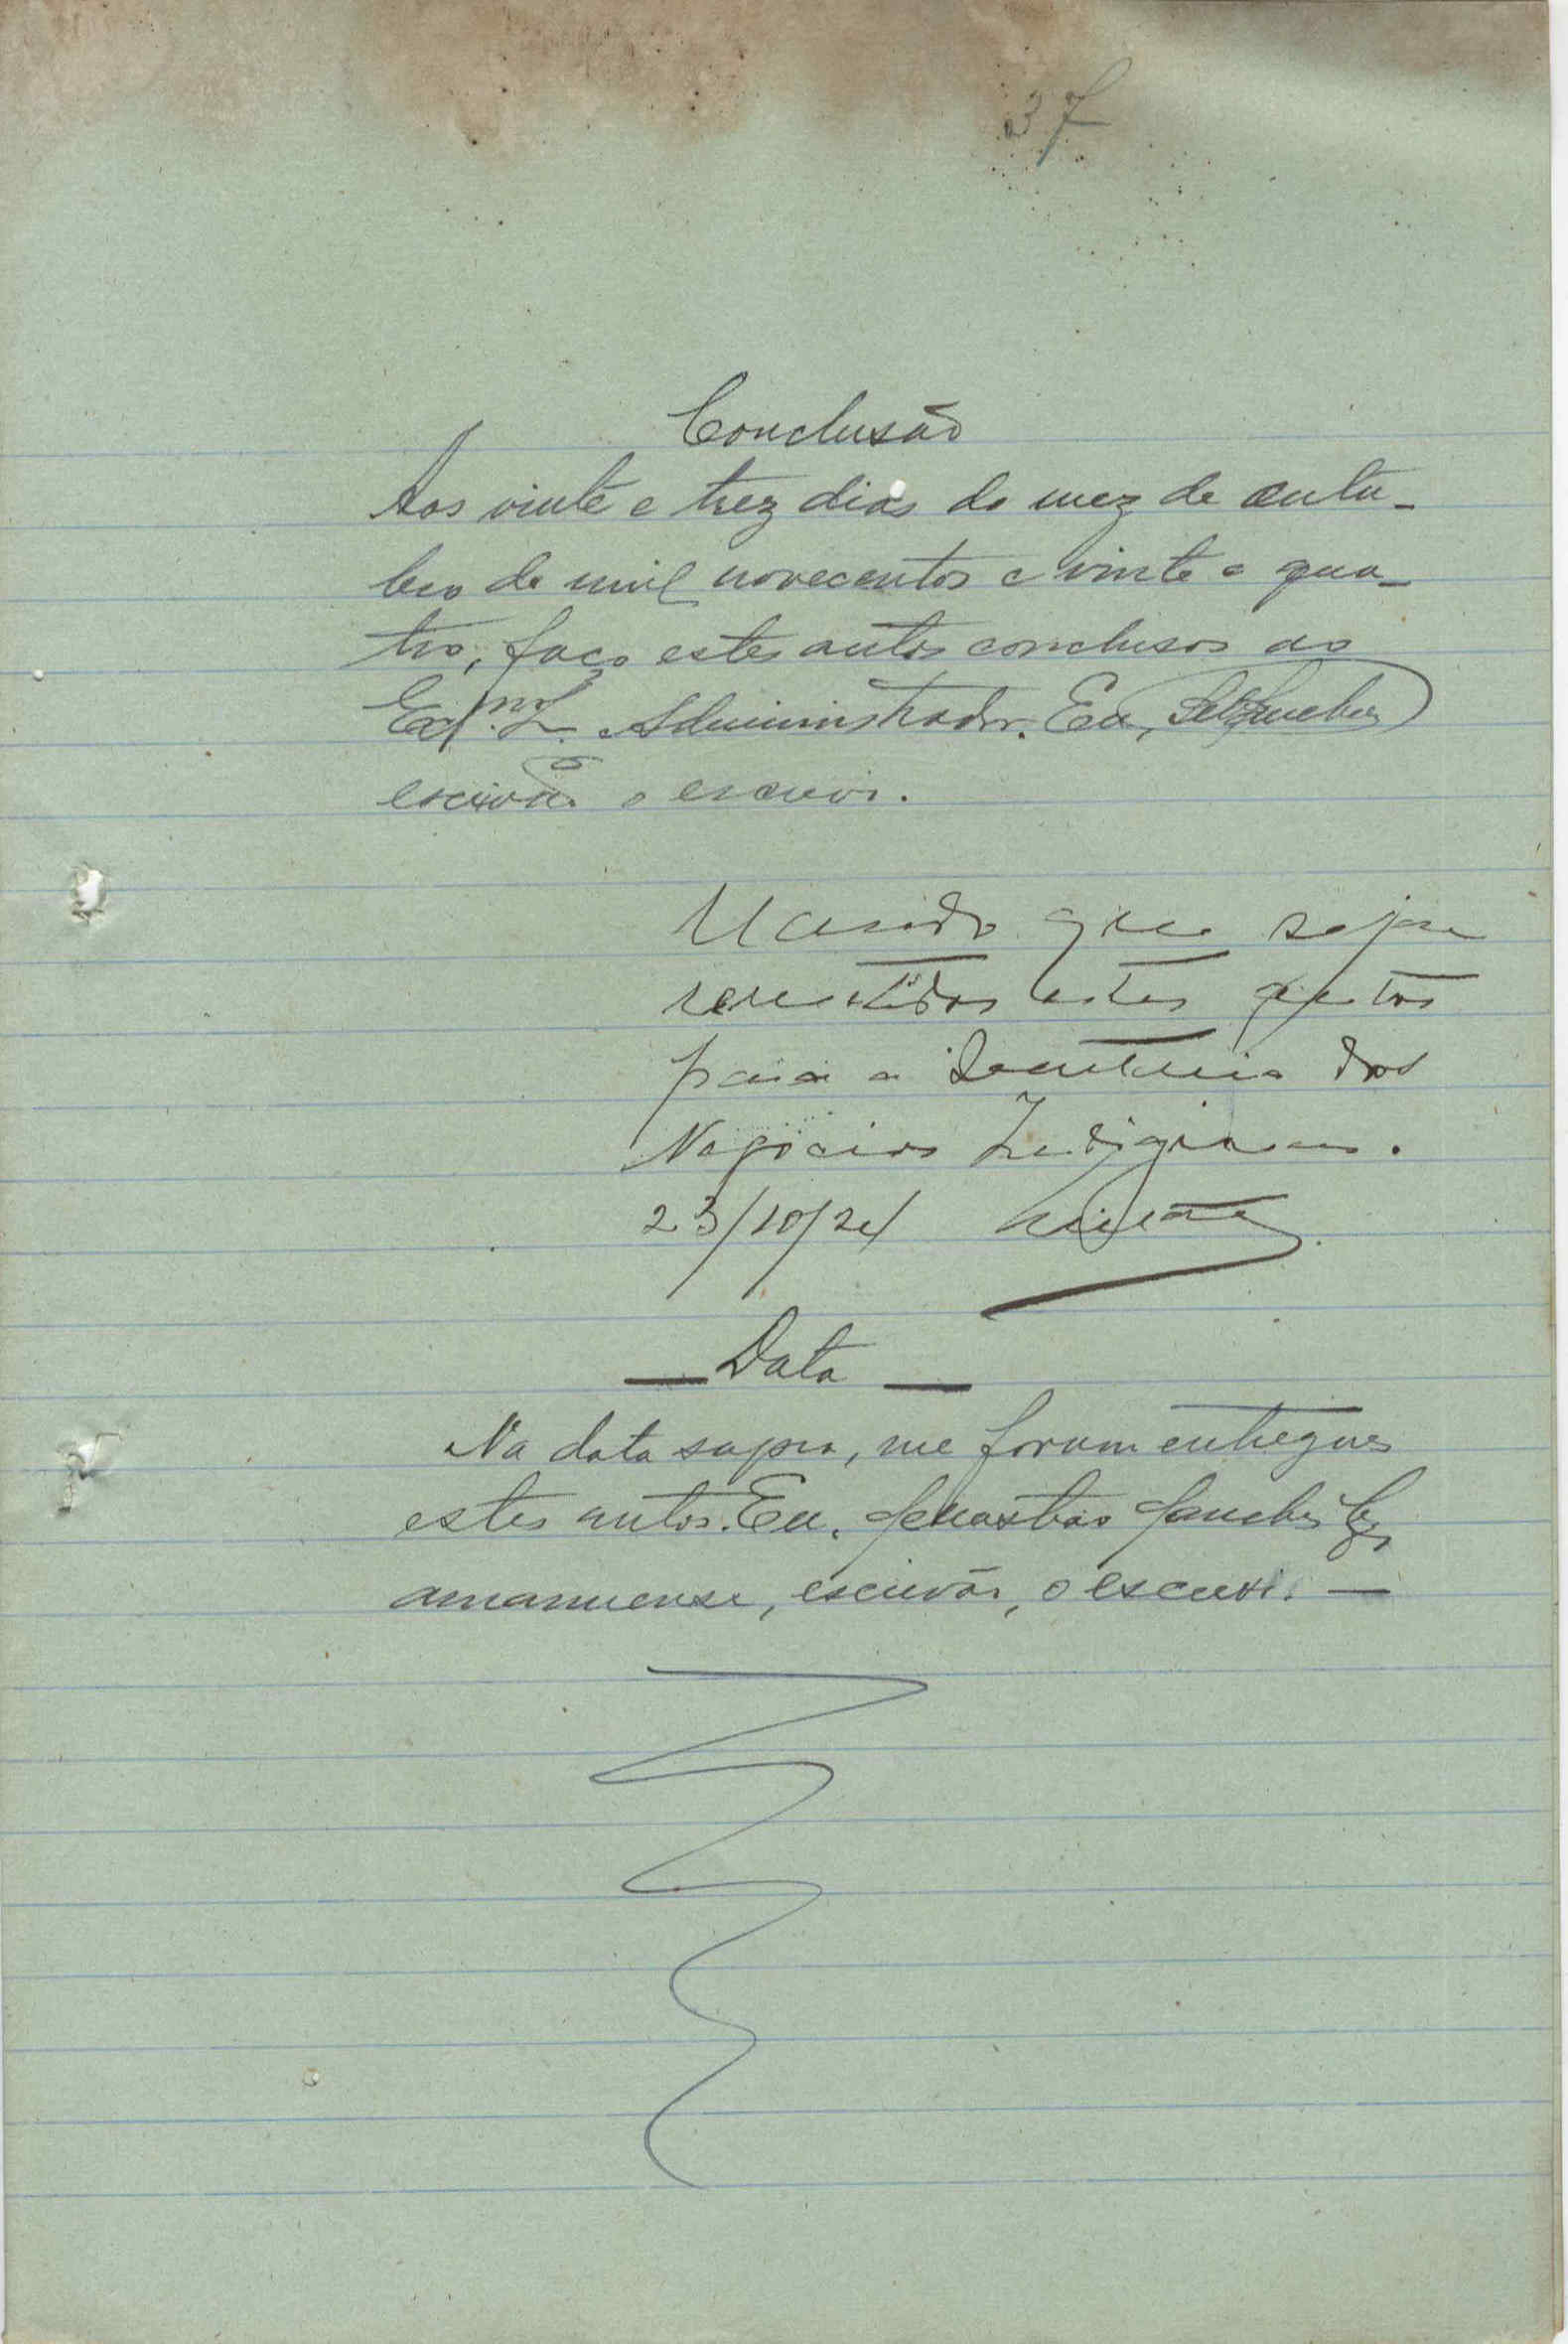 37
Conclusão
Aos vinte e trez dias do mez de outu-
bro de mil novecentos e vinte e qua-
tro, faço estes autos conclusos ao
Exmº. Sr. Administrador. Eu,
escrivão o escrevi.
Mando que sejam
remetidos estes autos
para a Secretaria dos
Negocios Indigenas.
23/10/24
— Data —
Na data supra, me foram entregues
estes autos. Eu, Sebastião Sanches
amanuense, escrivão, o escrevi. —